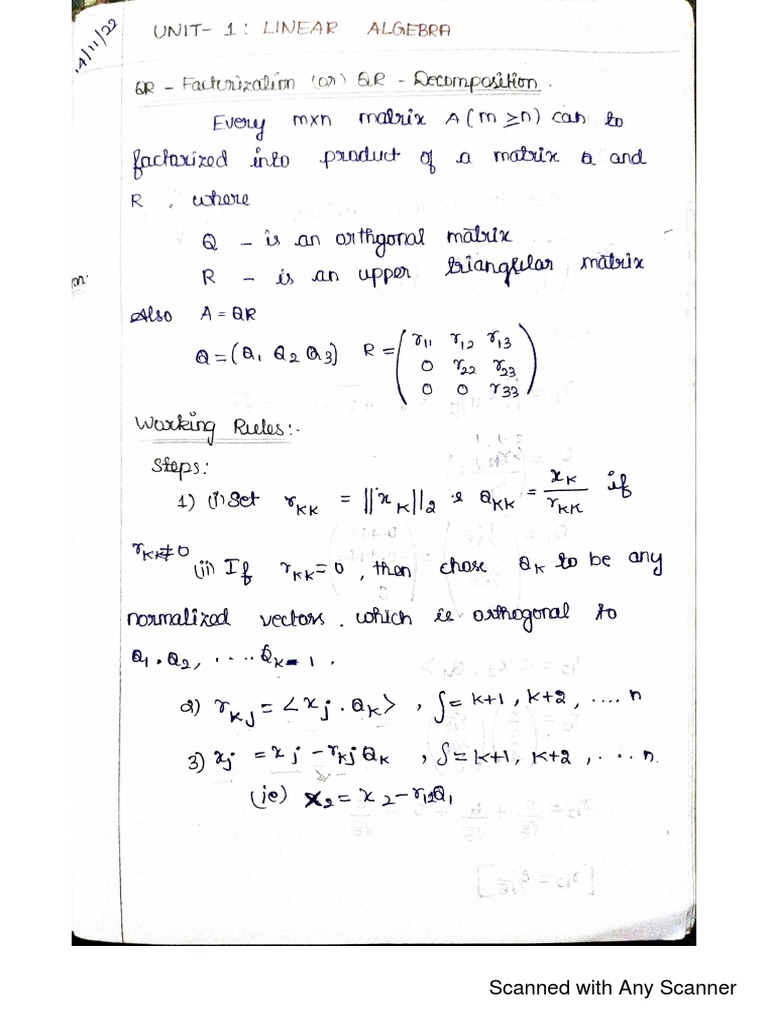 14/11/22
UNIT- 1: LINEAR ALGEBRA
QR - Factorization (or) QR - Decomposition.
Every mxn matrix A (m ≥ n) can to
factorized into product of a matrix Q and
R, where
Q - is an orthgonal matrix
R - is an upper triangular matrix
Also A = QR
Q = (Q1 Q2 Q3) R = ( r11 r12 r13
0 r22 r23
0 0 r33 )
Working Rules:-
Steps:
1) (i) Set rKK = ||xK||2 & QKK = xK / rKK if
rKK≠0
(ii) If rKK = 0, then chose QK to be any
normalized vectors. which is orthogonal to
Q1, Q2, .... Qk-1.
2) rkj = <xj . Qk>, j = k+1, k+2, .... n
3) xj = xj - rkj Qk, j = k+1, k+2, ... n.
(ie) x2 = x2 - r12Q1
Scanned with Any Scanner